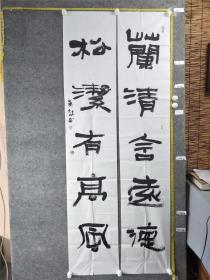 蘭清含遠德
松潔有高風